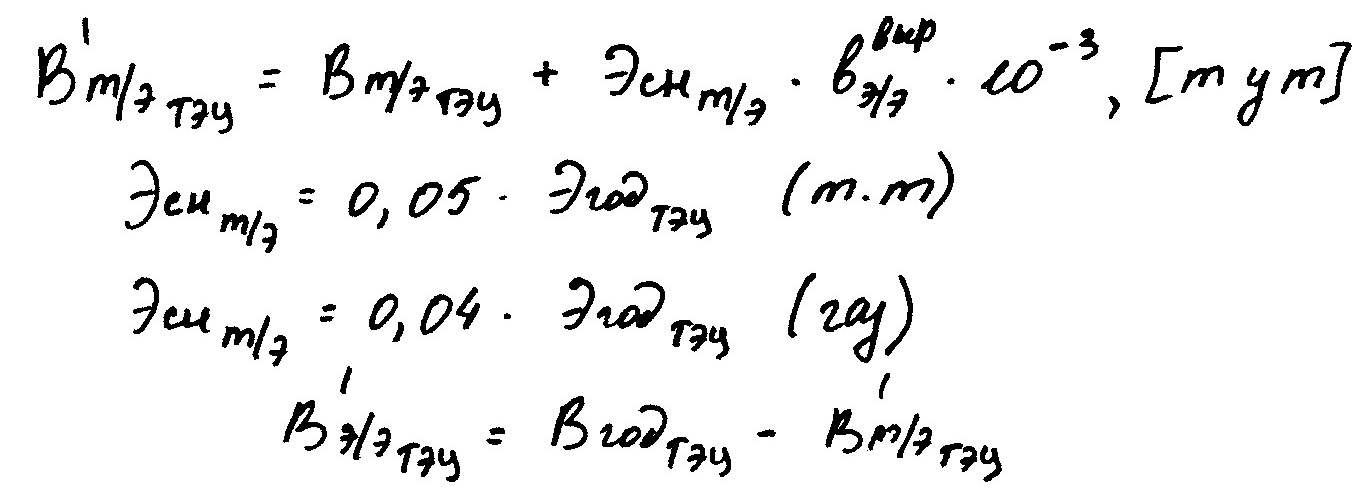 B'т/э ТЭЦ = Bт/э ТЭЦ + Эсн т/э · b э/э выр · 10⁻³, [т у т]
Эсн т/э = 0,05 · Эгод ТЭЦ (т.т)
Эсн т/э = 0,04 · Эгод ТЭЦ (газ)
B'э/э ТЭЦ = Bгод ТЭЦ - B'т/э ТЭЦ